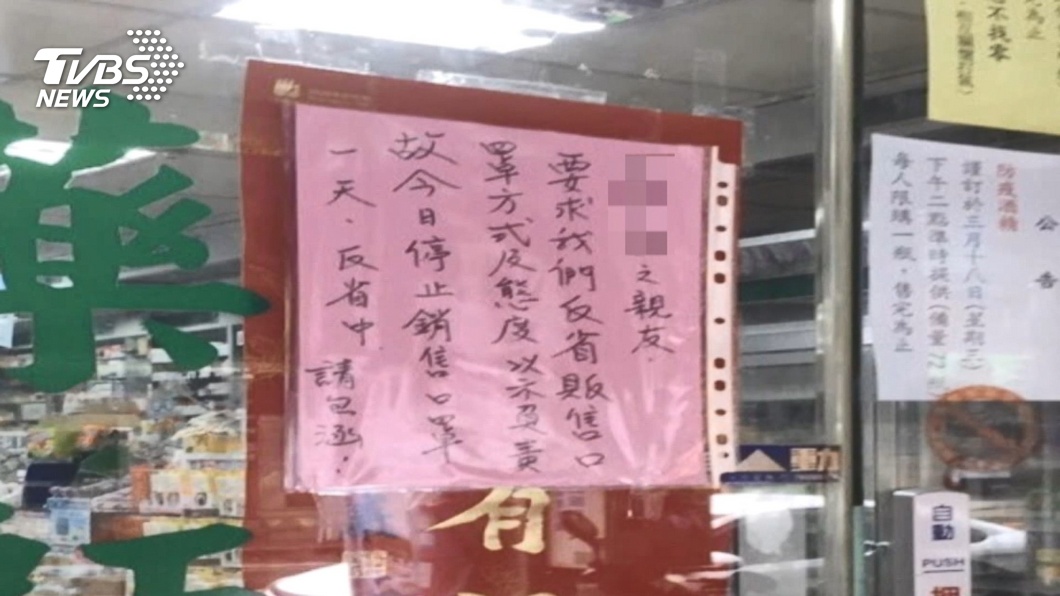 TVBS
NEWS
之親友.
要求我們反省販售口
罩方式及態度以示負責
故今日停止銷售口罩
一天.反省中
請包涵.
公告
防疫酒精
謹訂於三月十八日(星期三)
下午二點準時提供(備量72
每人限購一瓶,售完為止
不找零
為止
藥
有
自動
PUSH